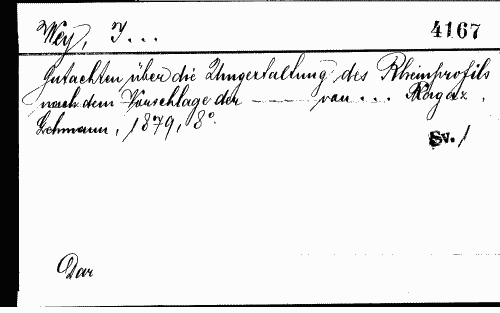 Wey, J... 4167
Gutachten über die Umgestaltung des Rheinprofils
nach dem Vorschlage der ——— von ... Ragaz,
Lehmann, 1879, 8°.
Sv. 1
Dar